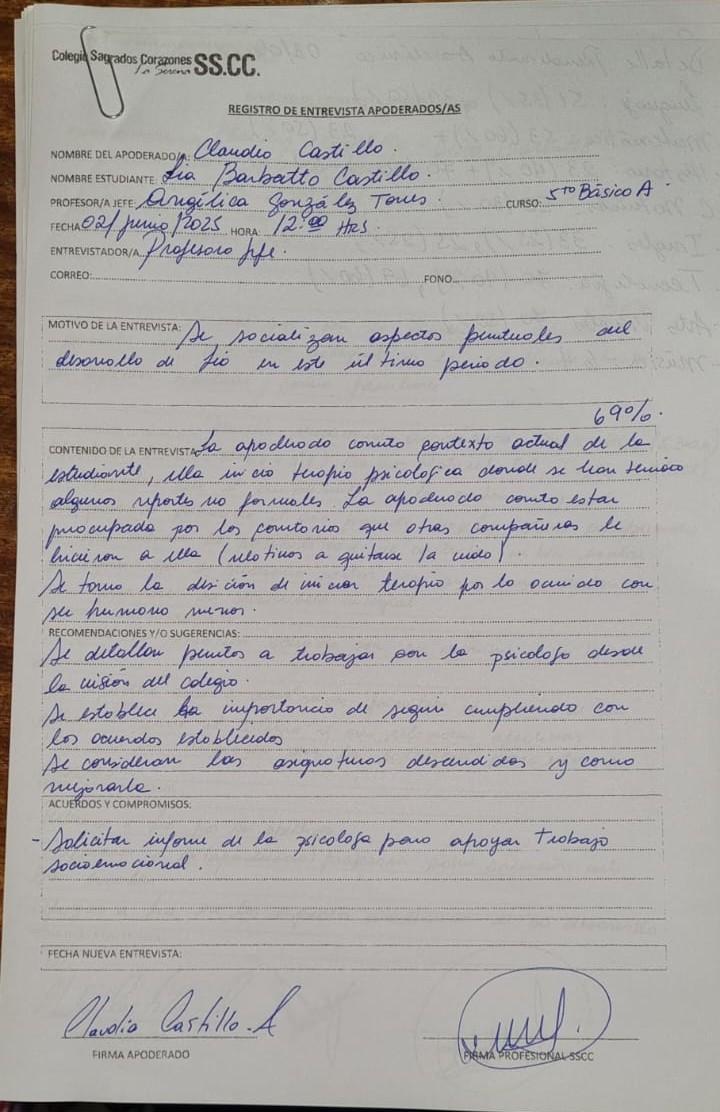 Colegio Sagrados Corazones SS.CC.
La Serena
REGISTRO DE ENTREVISTA APODERADOS/AS
NOMBRE DEL APODERADO/A: Claudia Castillo.
NOMBRE ESTUDIANTE: Lia Barbatto Castillo.
PROFESOR/A JEFE: Angélica González Torres. CURSO: 5to Básico A
FECHA 02/junio/2025 HORA: 12:00 Hrs.
ENTREVISTADOR/A Profesora jefe.
CORREO: FONO
MOTIVO DE LA ENTREVISTA: Se socializan aspectos puntuales del
desarrollo de Lia en este último periodo.
69%.
CONTENIDO DE LA ENTREVISTA La apoderada comenta contexto actual de la
estudiante, ella inició terapia psicologica donde se han tenido
algunos reportes no formales. La apoderada comenta estar
preocupada por los comentarios que otras compañeras le
hicieron a ella (relativos a quitarse la vida).
Se tomo la desición de iniciar terapia por lo ocurrido con
su hermano menor.
RECOMENDACIONES Y/O SUGERENCIAS:
Se detallan puntos a trabajar con la psicologa desde
la visión del colegio.
Se establece la importancia de seguir cumpliendo con
los acuerdos establecidos
Se consideran las asignaturas descendidas y como
mejorarla.
ACUERDOS Y COMPROMISOS:
- Solicitar informe de la psicologa para apoyar trabajo
socioemocional.
FECHA NUEVA ENTREVISTA:
Claudia Castillo. A
FIRMA APODERADO FIRMA PROFESIONAL SSCC